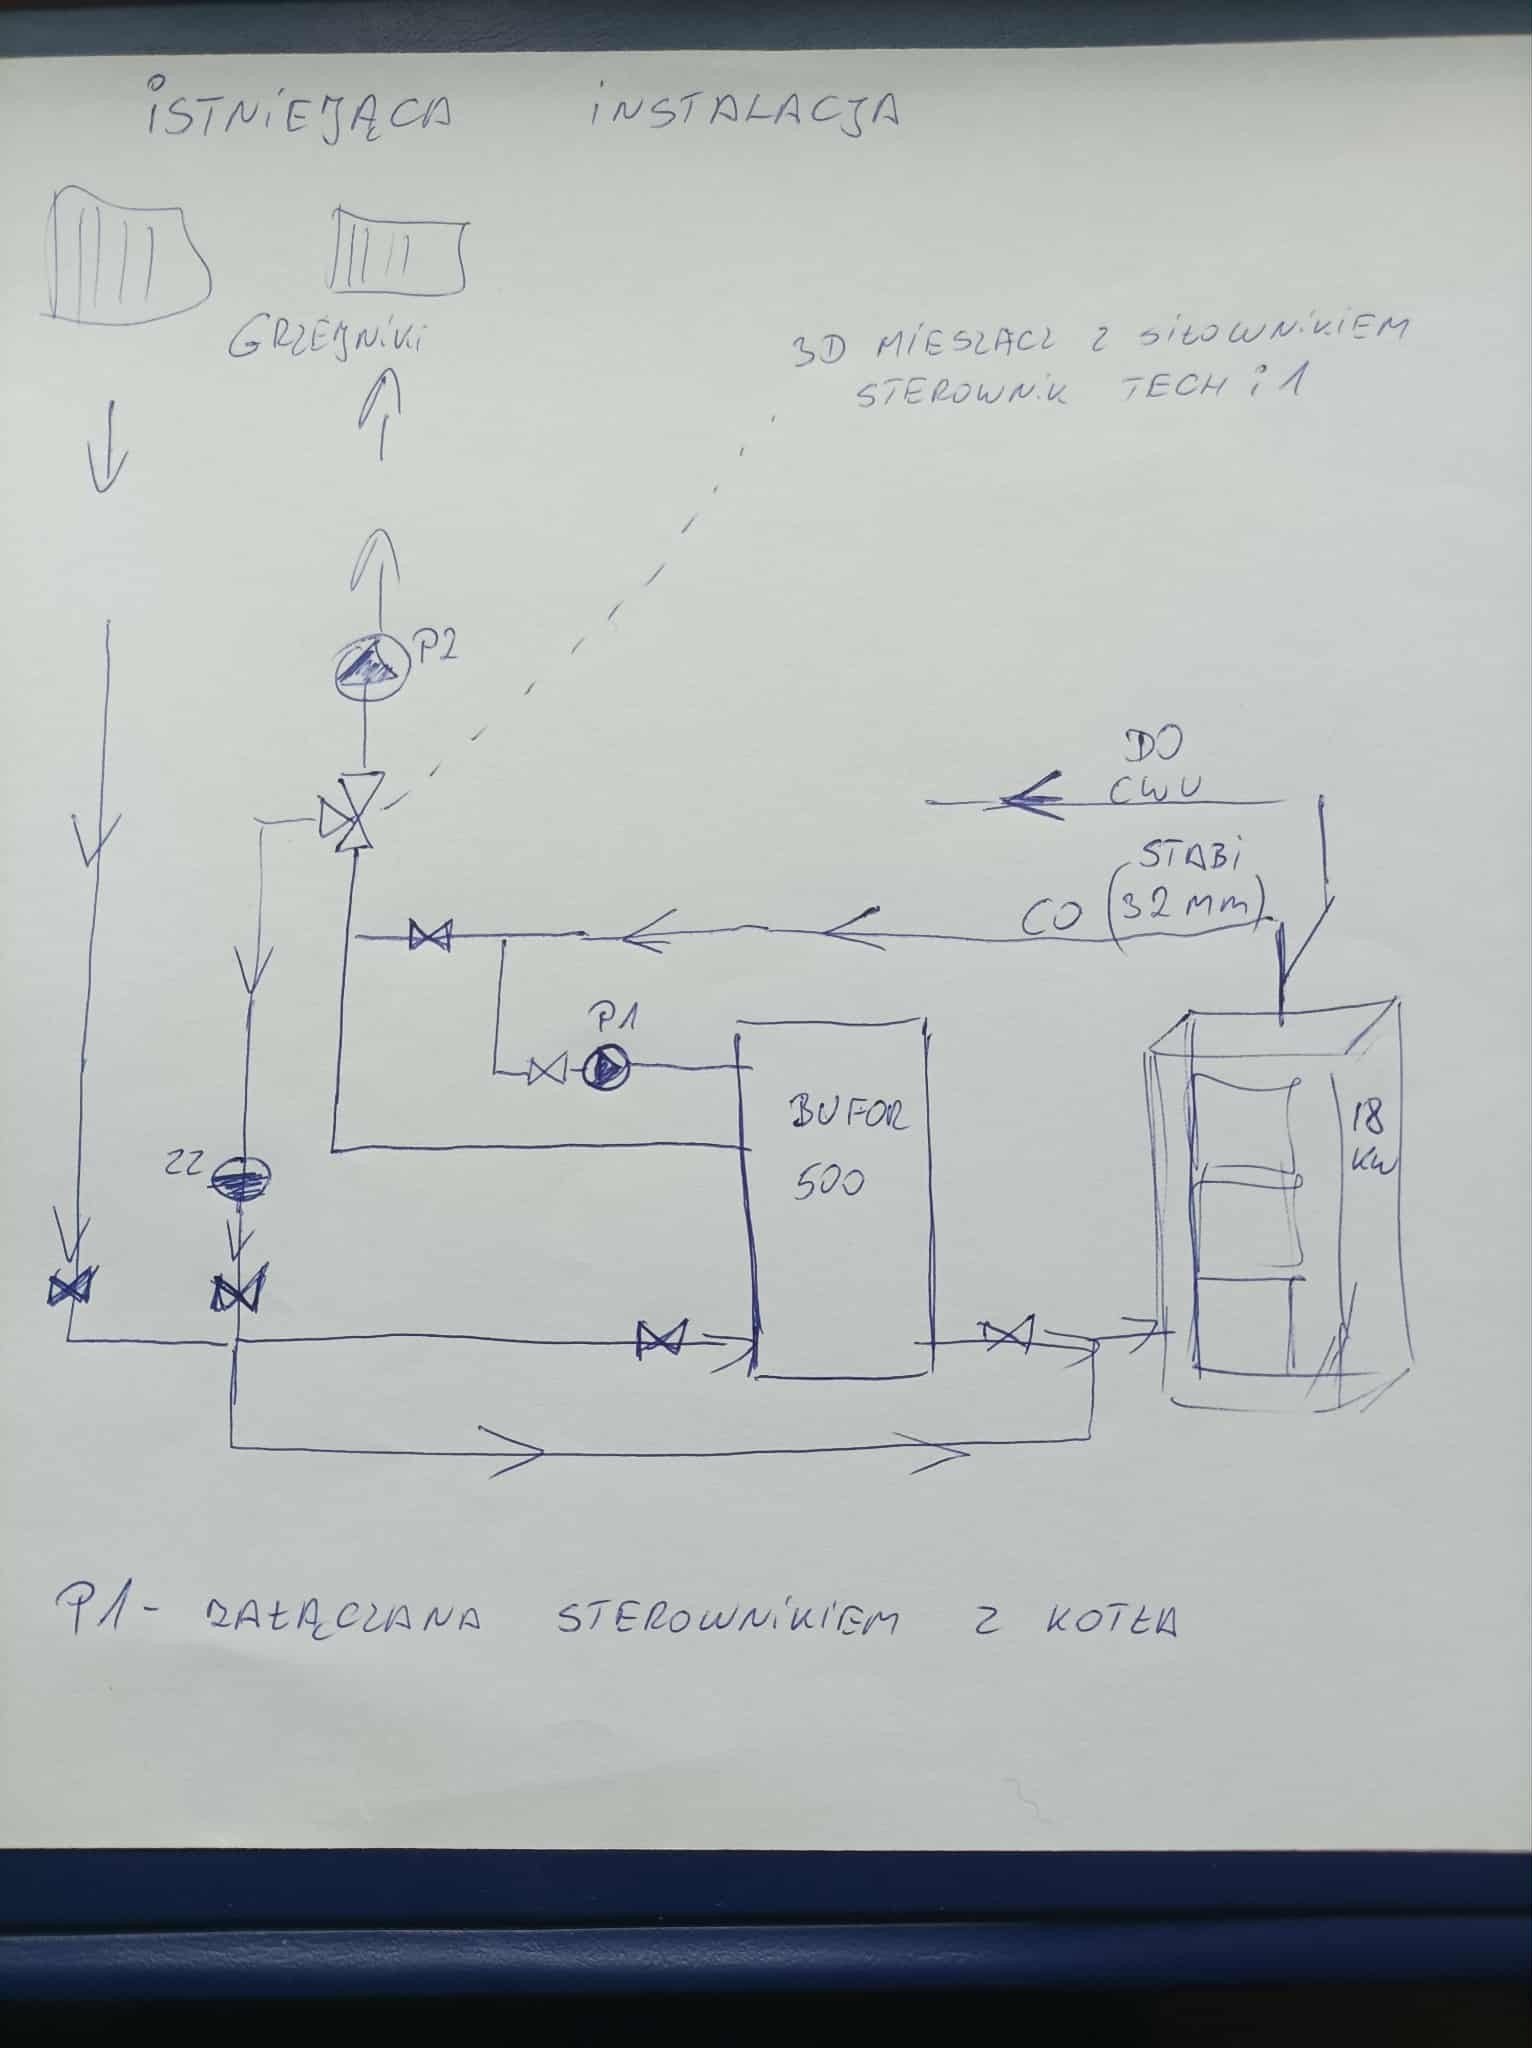 iSTNiEJĄCA iNSTALACJA
GRZEJNiKi
3D MiESZACZ Z SiŁOWNiKiEM
STEROWNiK TECH i 1
P2
DO
CWU
STABi
CO (32 MM)
P1
BUFOR
500
18
KW
ZZ
P1 - ZAŁĄCZANA STEROWNiKiEM Z KOTŁA